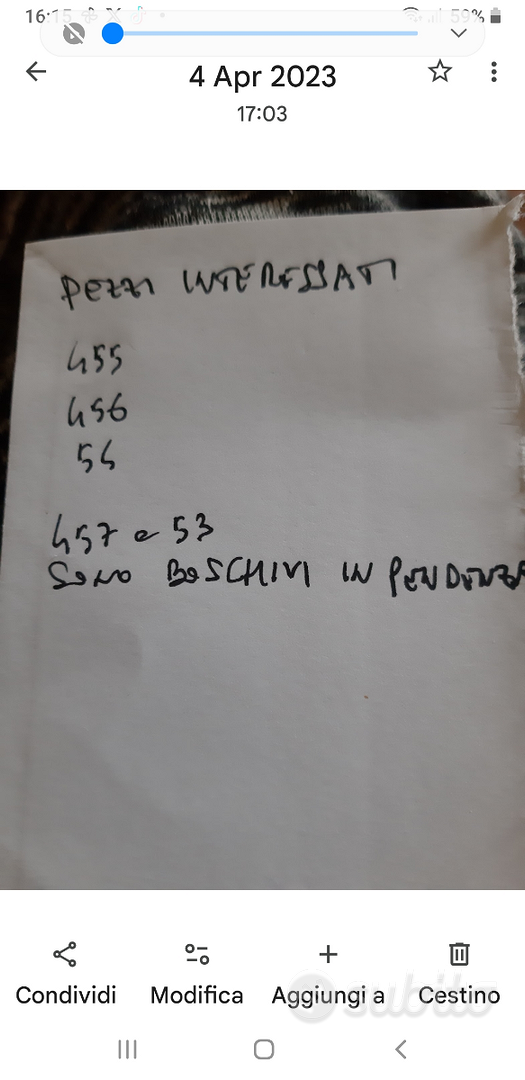 16:15 59%
4 Apr 2023
17:03
PEZZI INTERESSATI
455
456
54
457 e 53
SONO BOSCHIVI IN PENDENZA
Condividi Modifica Aggiungi a Cestino
subito